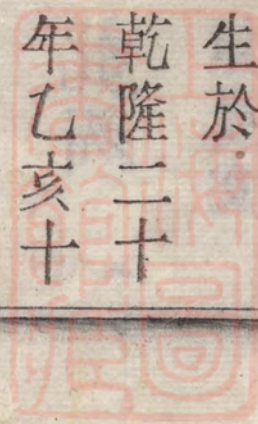 生於
乾隆二十
年乙亥十